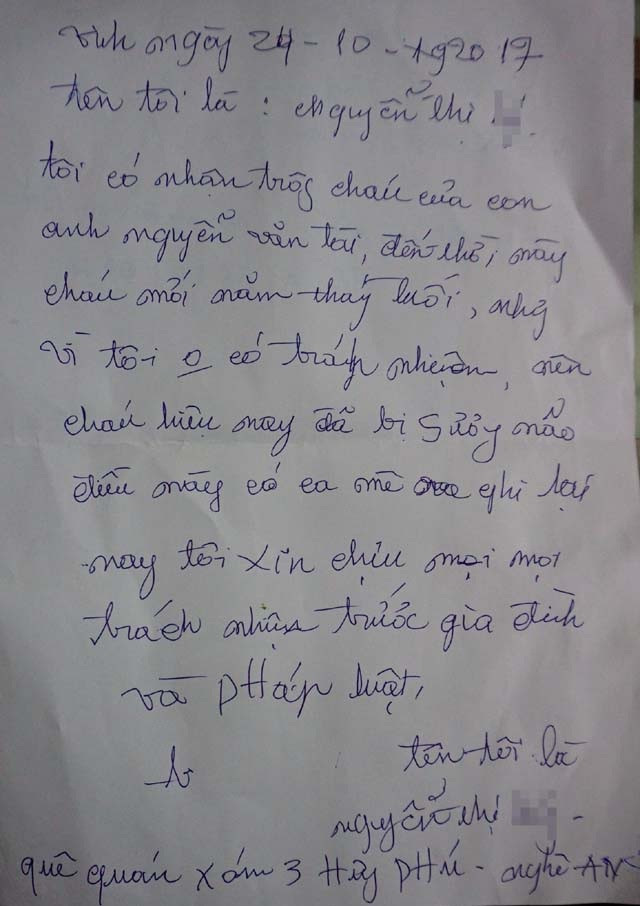 Vinh ngày 24-10-2017
tên tôi là : Nguyễn thị
tôi có nhận trôg cháu của con
anh nguyễn văn tài, đến thời này
cháu mới năm tháy tuổi, nhg
Vì tôi o có trách nhiệm, nên
cháu hiện nay đã bị Sủy não
điều này có ca mê ghi lại
nay tôi xin chịu mọi mọi
trách nhiệm trước gia đình
và PHáp luật,
tên tôi là
nguyễn thị
quê quán xóm 3 Hậy PHú - nghê-AN